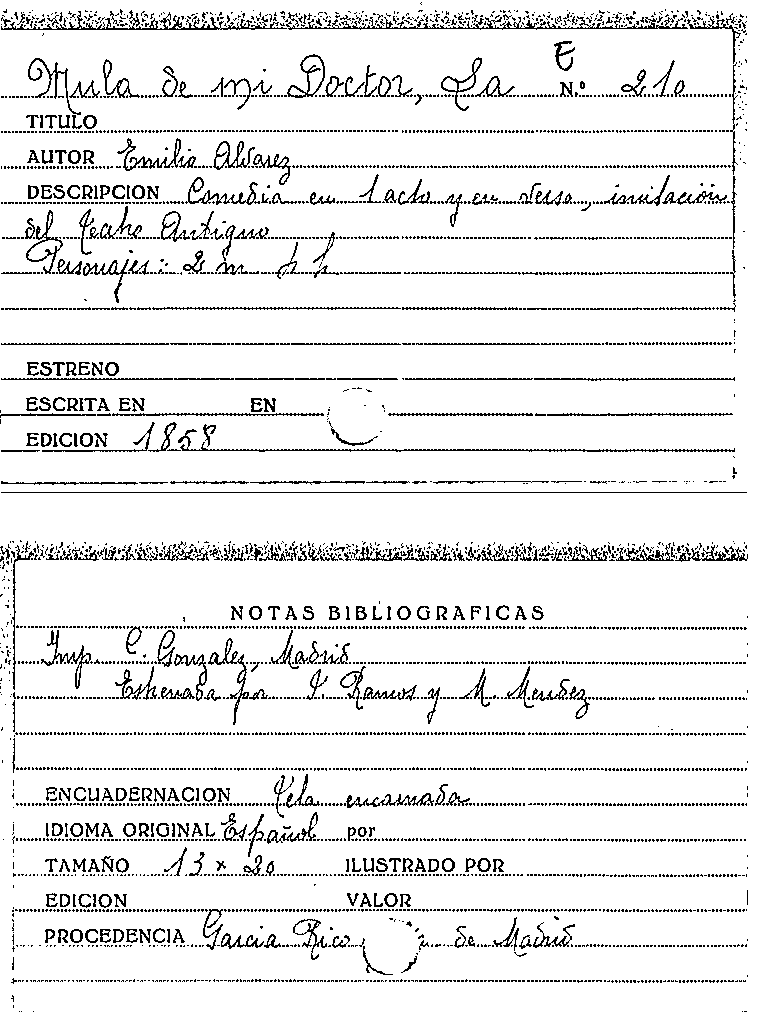 E
Mula de mi Doctor, La N.º 210
TITULO
AUTOR Emilio Alvarez
DESCRIPCION Comedia en 1 acto y en verso, imitación
del Teatro Antiguo
Personajes: 2 m
ESTRENO
ESCRITA EN EN
EDICION 1858
NOTAS BIBLIOGRAFICAS
Imp. C. Gonzalez, Madrid
Estrenada por J. Ramos y M. Mendez
ENCUADERNACION Tela encarnada
IDIOMA ORIGINAL Español por
TAMAÑO 13 x 20 ILUSTRADO POR
EDICION VALOR
PROCEDENCIA Garcia Rico de Madrid